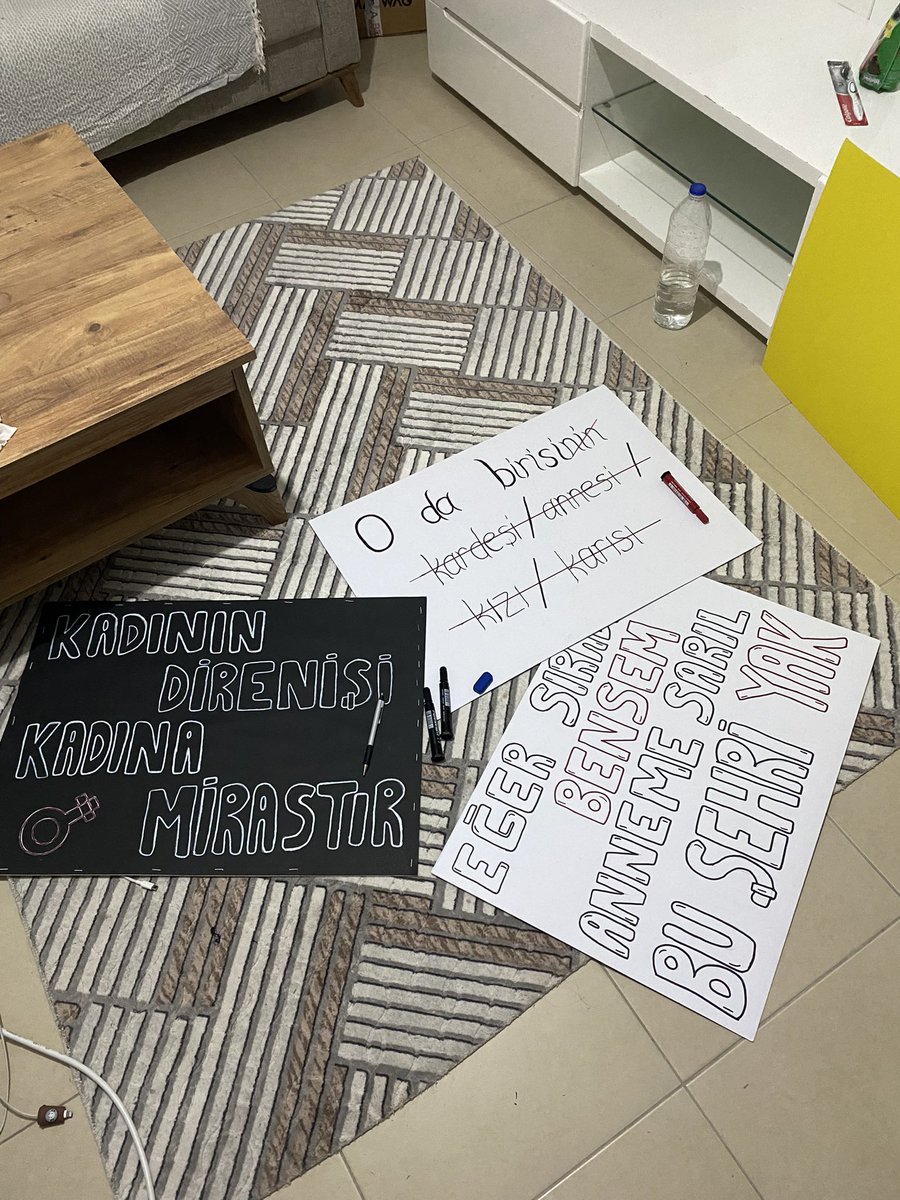 KADININ
DİRENİŞİ
KADINA
MİRASTIR
O da birisinin
kardeşi / annesi /
kızı / karısı
EĞER
BENSEM
ANNEME SARIL
BU ŞEHRİ YAK
Colgate